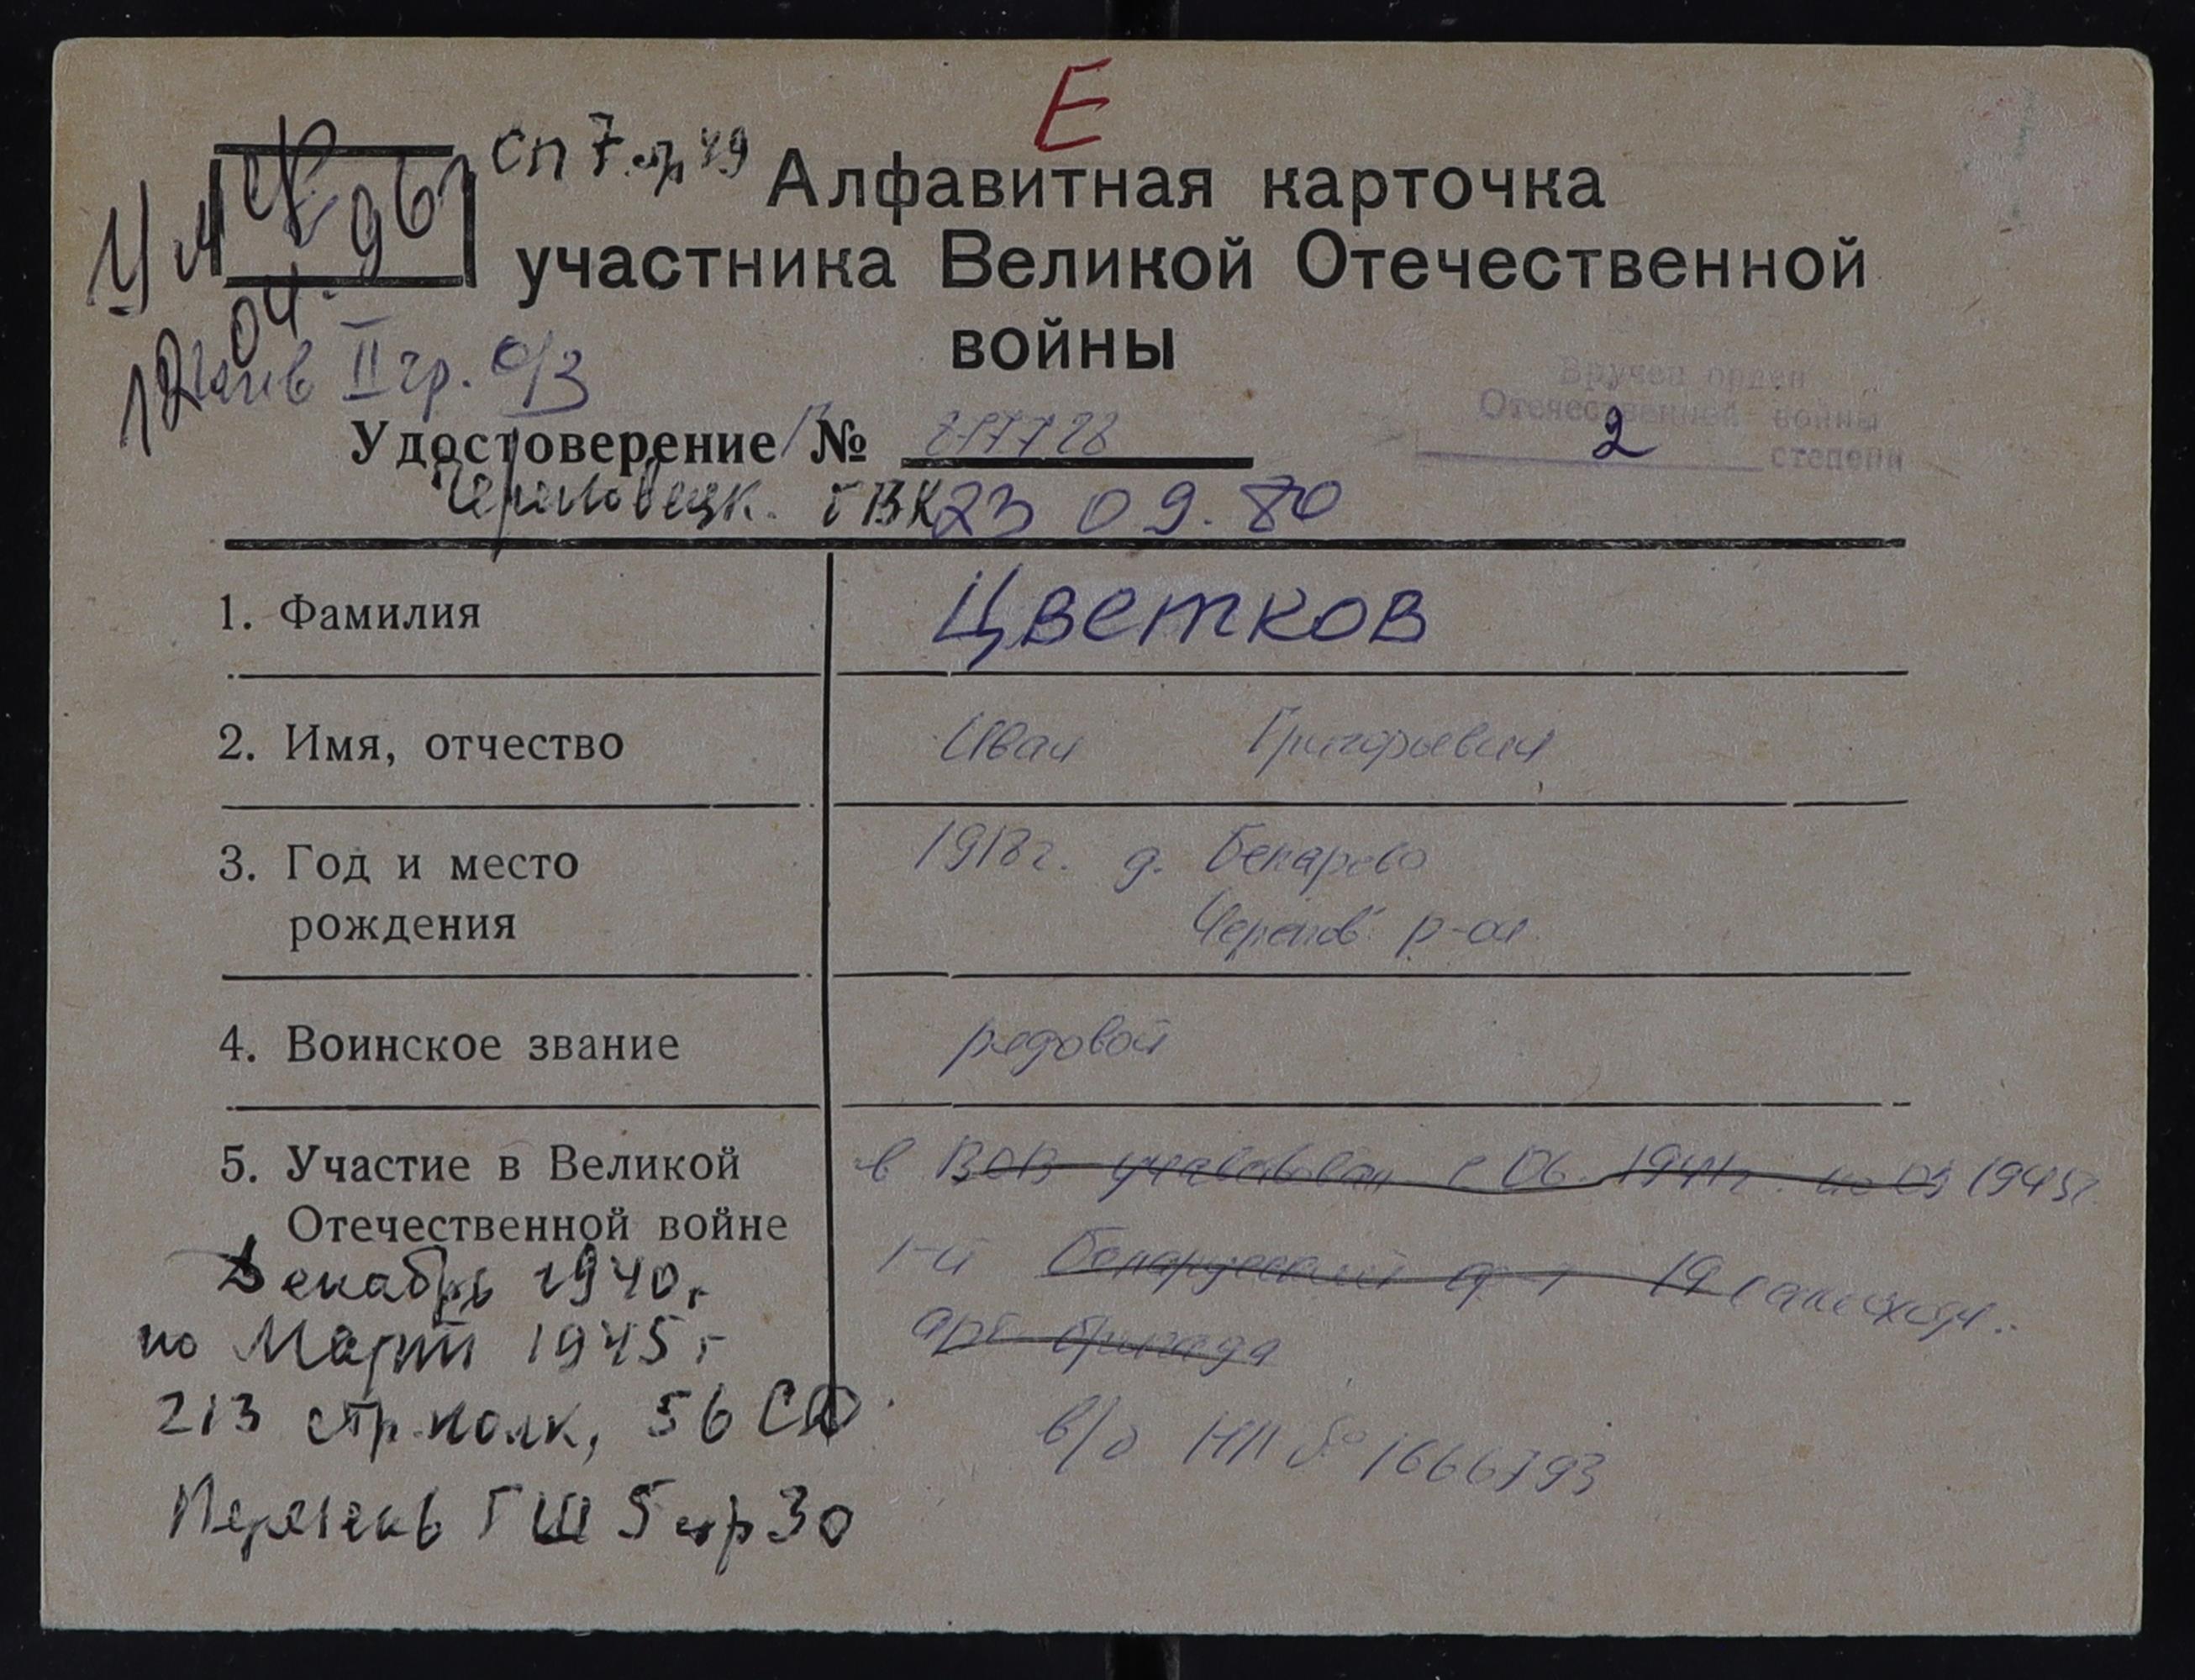 Е
СП 7 стр 49
Алфавитная карточка
участника Великой Отечественной
войны
Ум
12 04. 96
инв II гр. о/з
Вручен орден
Отечественной войны
2 степени
Удостоверение № 877728
Череповецк. ГВК 23 09. 80
1. Фамилия Цветков
2. Имя, отчество Иван Григорьевич
3. Год и место 1918 г. д. Бекарево
рождения Черепов. р-он
4. Воинское звание рядовой
5. Участие в Великой в ВОВ участвовал с 06. 1941г. по 03 1945г.
Отечественной войне
1-й Белорусский фр-т 19 самоход.
Декабрь 1940 г
по Март 1945 г
арт. бригада
213 стр полк, 56 СД
в/б НП № 1666793
Перечень ГШ 5 стр 30